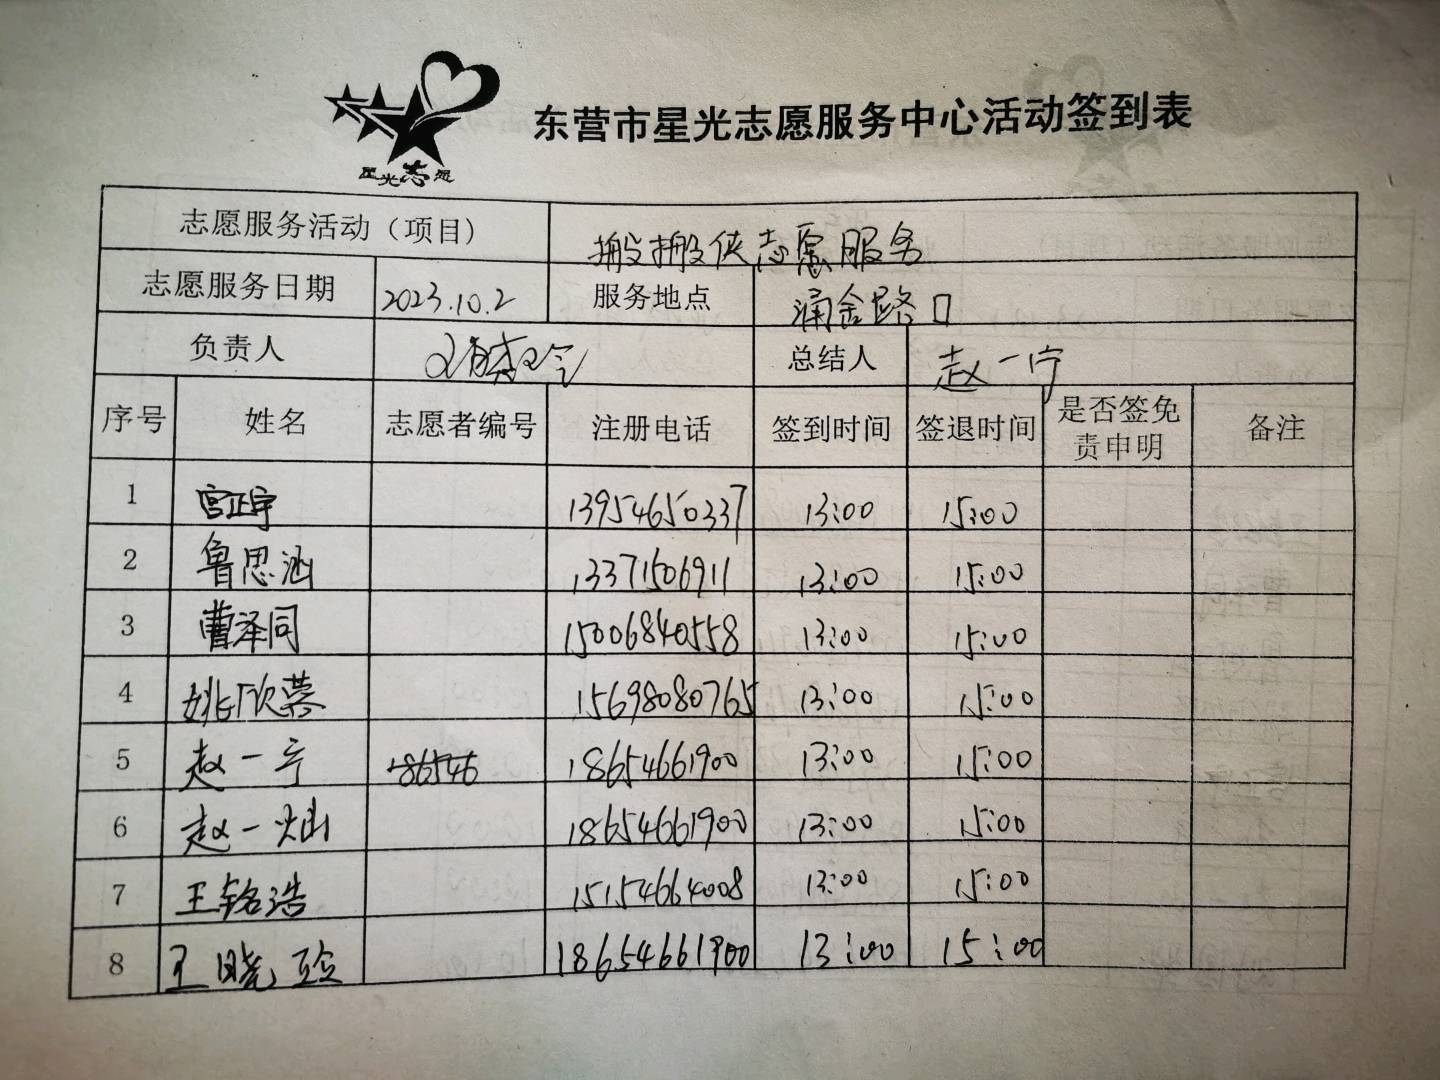 东营市星光志愿服务中心活动签到表
星光志愿
志愿服务活动（项目） 搬搬侠志愿服务
志愿服务日期 2023.10.2 服务地点 涌金路口
负责人 总结人 赵一宁
序号 姓名 志愿者编号 注册电话 签到时间 签退时间 是否签免责申明 备注
1 宫正宇 13954650337 13:00 15:00
2 鲁思涵 13371506911 13:00 15:00
3 曹泽同 15006840558 13:00 15:00
4 姚欣蓉 15698080765 13:00 15:00
5 赵一宁 186546 18654661900 13:00 15:00
6 赵一灿 18654661900 13:00 15:00
7 王铭浩 15154664008 13:00 15:00
8 王晓 18654661900 13:00 15:00